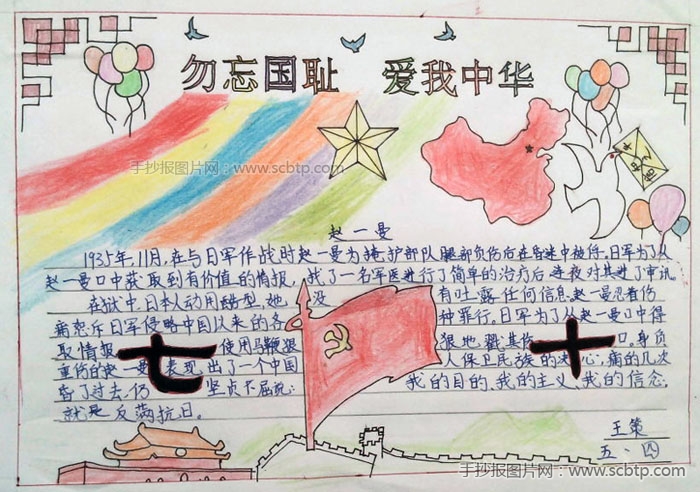 勿忘国耻 爱我中华
手抄报图片网:www.scbtp.com
赵一曼
1935年,11月,在与日军作战时赵一曼为掩护部队腿部负伤后在昏迷中被俘。日军为了从
赵一曼口中获取到有价值的情报,找了一名军医进行了简单的治疗后连夜对其进了审讯。
在狱中日本人动用酷型,她没有吐露任何信息。赵一曼忍着伤
痛怒斥日军侵略中国以来的各种罪行。日军为了从赵一曼口中得
取情报 使用马鞭狠狠地戳其伤口,身负
重伤的赵一曼表现出了一个中国人保卫民族的决心;痛的几次
昏了过去,仍坚贞不屈说:我的目的,我的主义,我的信念,
就是反满抗日。
七十
王策
五、四
手抄报图片网:www.scbtp.com